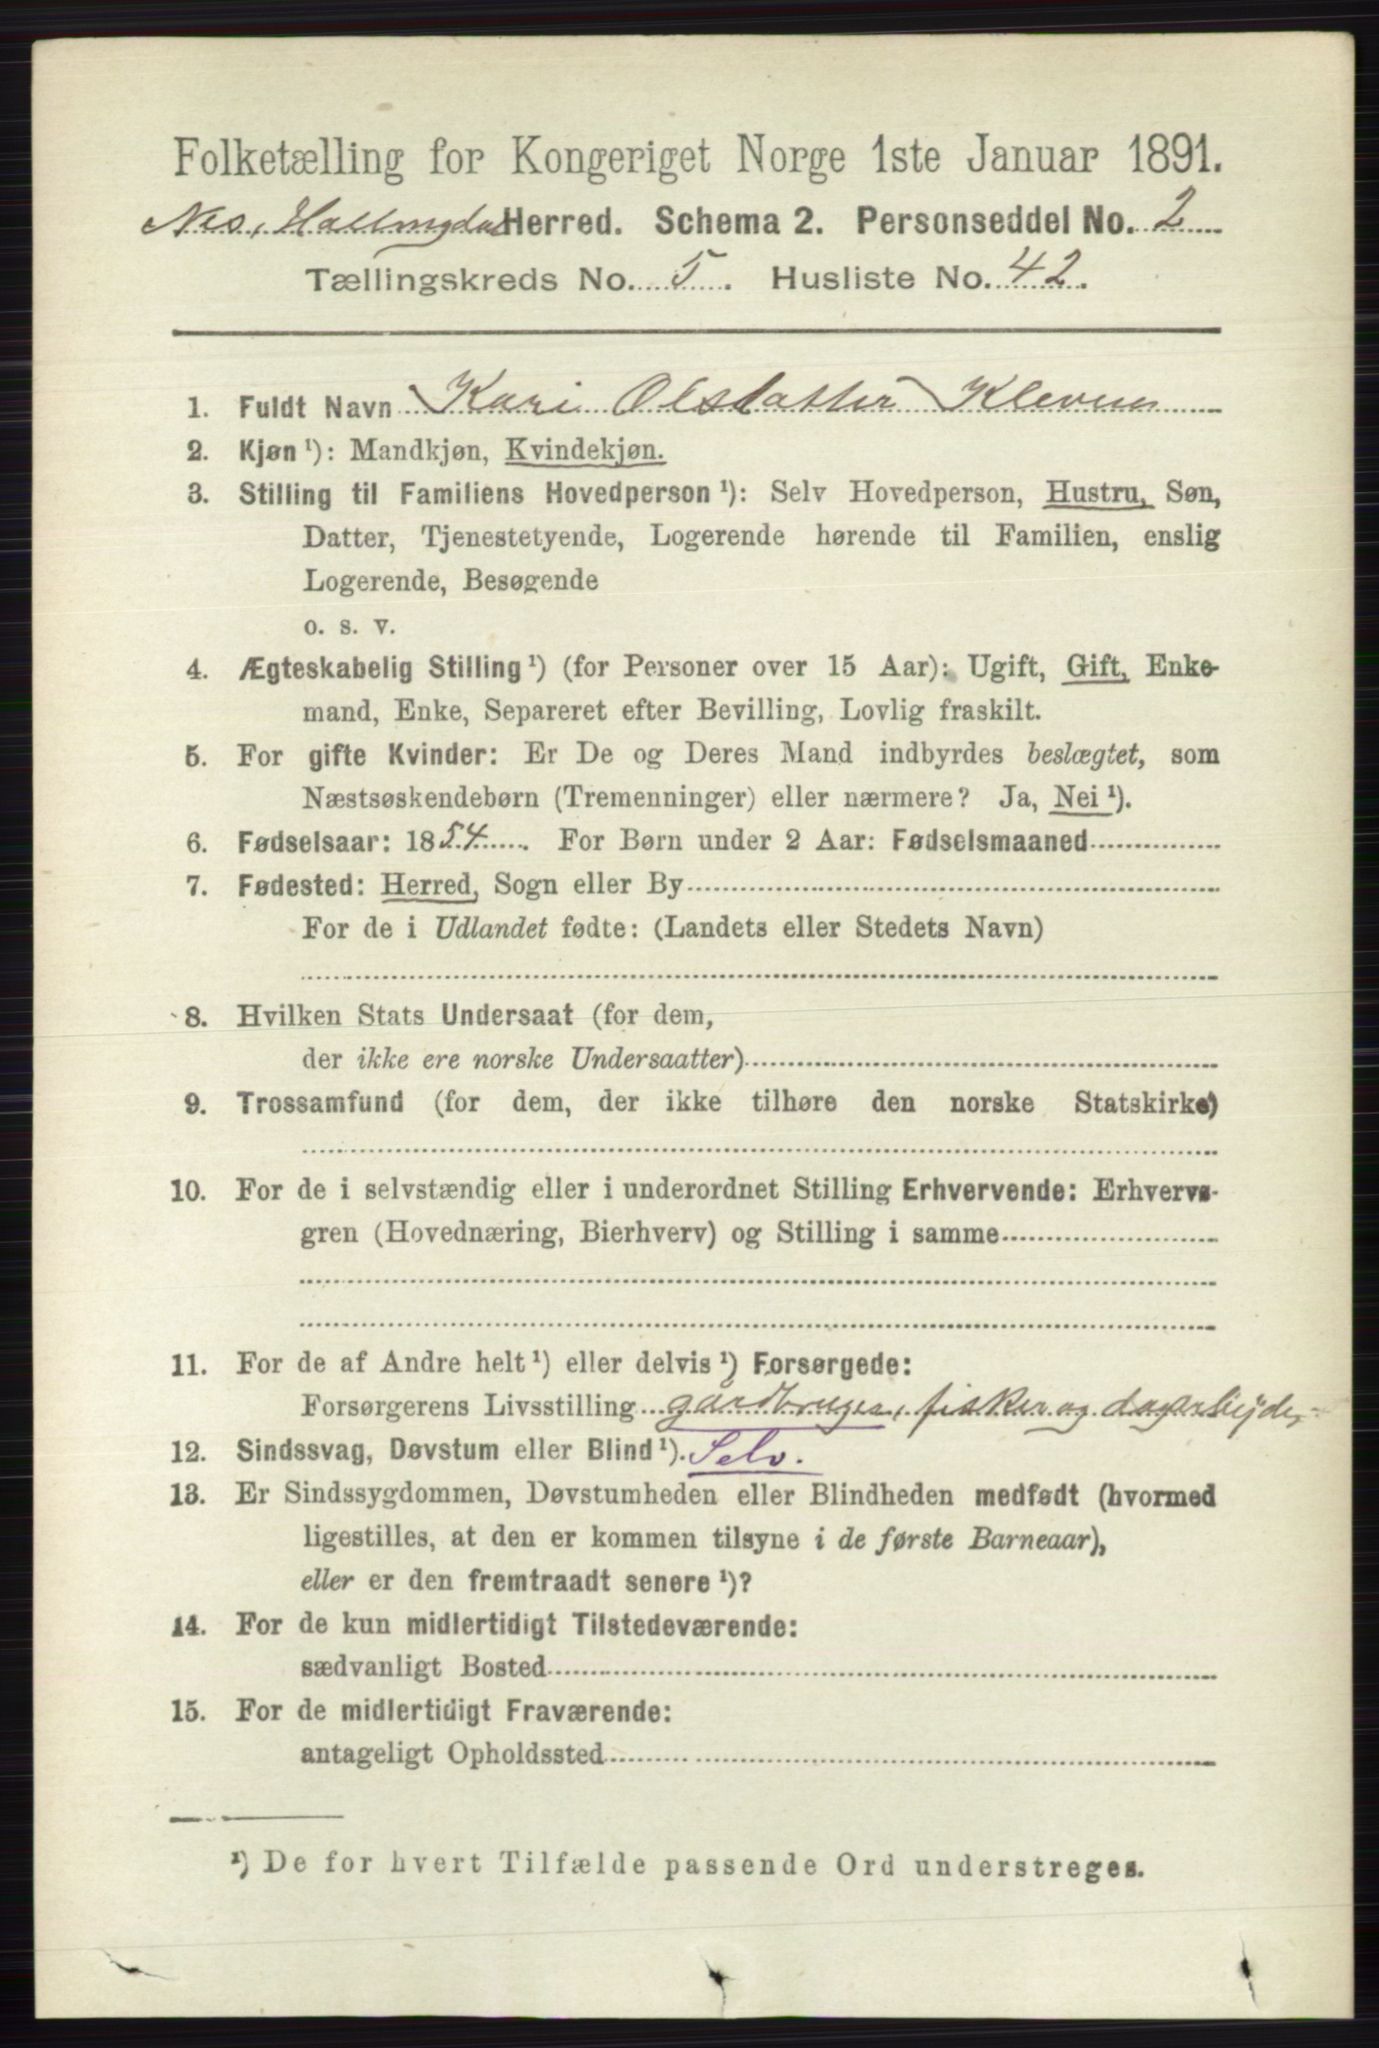 Folketælling for Kongeriget Norge 1ste Januar 1891.
Nes, Hallingdal Herred. Schema 2. Personseddel No. 2
Tællingskreds No. 5. Husliste No. 42.
1. Fuldt Navn Kari Olsdatter Kleven
2. Kjøn ¹): Mandkjøn, Kvindekjøn.
3. Stilling til Familiens Hovedperson ¹): Selv Hovedperson, Hustru, Søn,
Datter, Tjenestetyende, Logerende hørende til Familien, enslig
Logerende, Besøgende
o. s. v.
4. Ægteskabelig Stilling ¹) (for Personer over 15 Aar): Ugift, Gift, Enke-
mand, Enke, Separeret efter Bevilling, Lovlig fraskilt.
5. For gifte Kvinder: Er De og Deres Mand indbyrdes beslægtet, som
Næstsøskendebørn (Tremenninger) eller nærmere? Ja, Nei ¹).
6. Fødselsaar: 1854. For Børn under 2 Aar: Fødselsmaaned
7. Fødested: Herred, Sogn eller By
For de i Udlandet fødte: (Landets eller Stedets Navn)
8. Hvilken Stats Undersaat (for dem,
der ikke ere norske Undersaatter)
9. Trossamfund (for dem, der ikke tilhøre den norske Statskirke)
10. For de i selvstændig eller i underordnet Stilling Erhvervende: Erhvervs-
gren (Hovednæring, Bierhverv) og Stilling i samme
11. For de af Andre helt ¹) eller delvis ¹) Forsørgede:
Forsørgerens Livsstilling gårdbruger, fisker og dagarbejder
12. Sindssvag, Døvstum eller Blind ¹). Selv.
13. Er Sindssygdommen, Døvstumheden eller Blindheden medfødt (hvormed
ligestilles, at den er kommen tilsyne i de første Barneaar),
eller er den fremtraadt senere ¹)?
14. For de kun midlertidigt Tilstedeværende:
sædvanligt Bosted
15. For de midlertidigt Fraværende:
antageligt Opholdssted
¹) De for hvert Tilfælde passende Ord understreges.